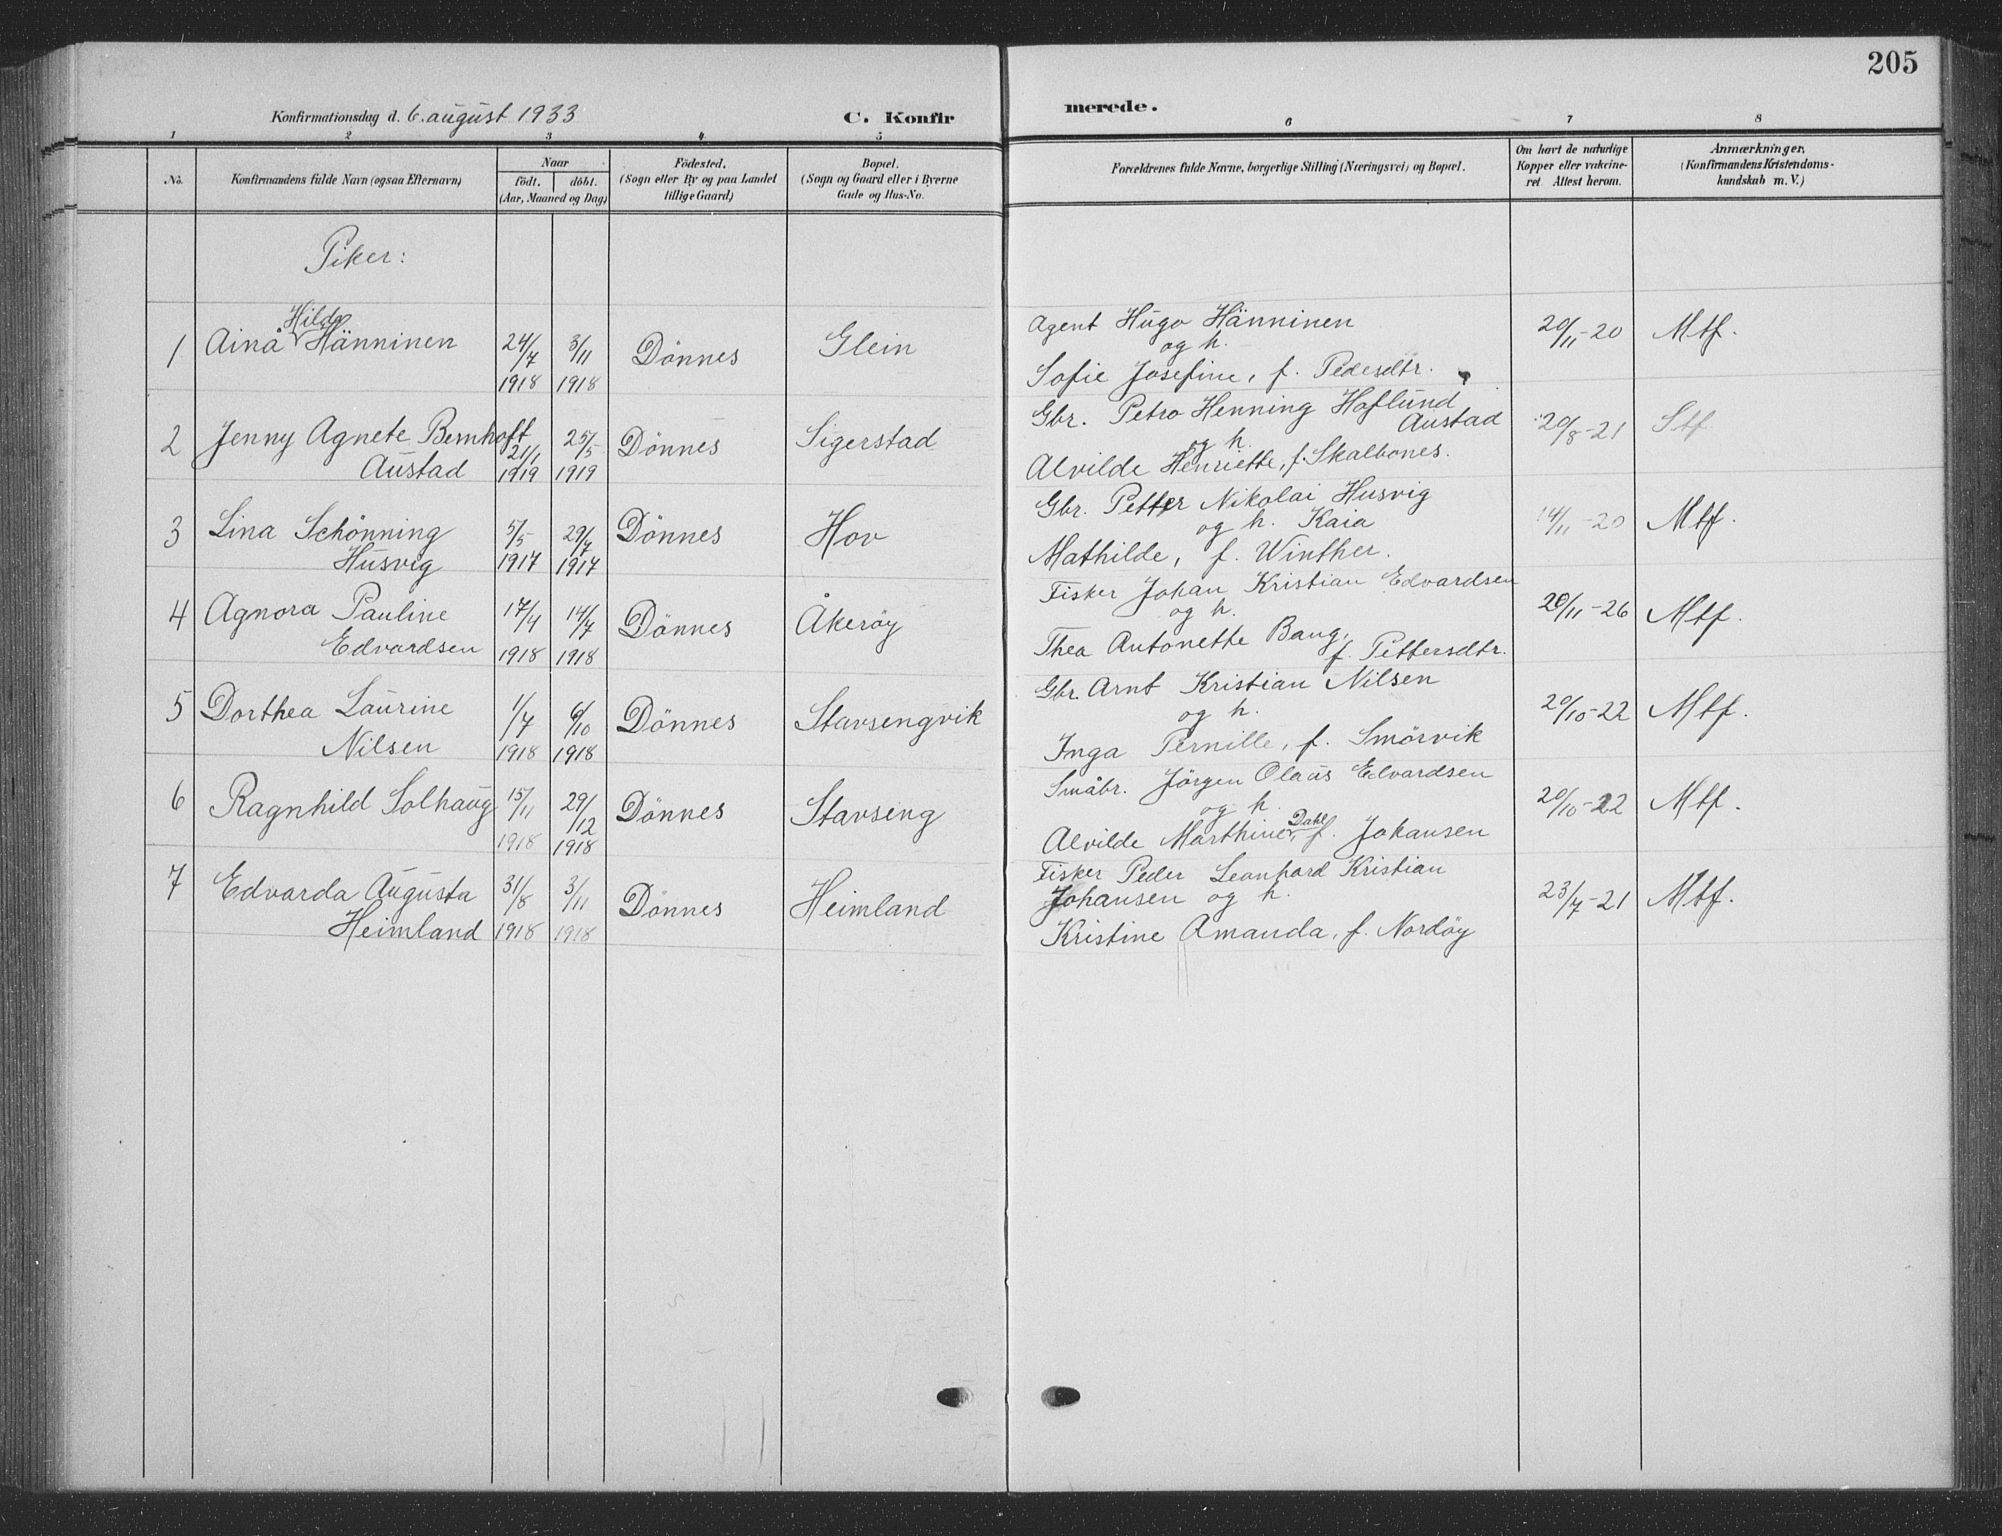 205
Konfirmationsdag d. 6. august 1933
C. Konfir
merede.
1 2 3 4 5 6 7 8
No.
Konfirmandens fulde Navn (ogsaa Efternavn)
Naar
født. døbt.
(Aar, Maaned og Dag)
Födested.
(Sogn eller By og paa Landet
tillige Gaard)
Bopæl.
(Sogn og Gaard eller i Byerne
Gade og Hus-No.
Forældrenes fulde Navne, borgerlige Stilling (Næringsvei) og Bopæl.
Om havt de naturlige
Kopper eller vakcine-
ret. Attest herom.
Anmærkninger.
(Konfirmandens Kristendoms-
kundskab m. V.)
Piker:
Hilda
1 Ainå Hänninen 24/7 1918 3/11 1918 Dönnes Glein
Agent Hugo Hänninen
og h.
Sofie Josefine, f. Pedesdtr.
20/11-20 Mtf.
2 Jenny Agnete Bernhoft
Austad 21/1 1919 25/5 1919 Dönnes Sigerstad
Gbr. Petro Henning Haflund
Austad
og h.
Alvilde Henriette, f. Skalbones.
20/8-21 Stf
3 Lina Schönning
Husvig 5/5 1917 29/7 1917 Dönnes Hov
Gbr. Petter Nikolai Husvig
og h. Kaia
Mathilde, f. Winther.
14/11-20 Mtf.
4 Agnora Pauline
Edvardsen 17/4 1918 14/7 1918 Dönnes Åkeröy
Fisker Johan Kristian Edvardsen
og h.
Thea Antonette Bang,
f. Pettersdtr.
20/11-26 Mtf.
5 Dorthea Laurine
Nilsen 1/7 1918 6/10 1918 Dönnes Stavsengvik
Gbr. Arnt Kristian Nilsen
og h.
Inga Pernille, f. Smörvik
20/10-22 Mtf.
6 Ragnhild Solhaug 15/11 1918 29/12 1918 Dönnes Stavseng
Småbr. Jörgen Olaus Edvardsen
og h.
Dahl
Alvilde Marthine, f. Johansen
20/10-22 Mtf.
7 Edvarda Augusta
Heimland 31/8 1918 3/11 1918 Dönnes Heimland
Fisker Peder Leonhard Kristian
Johansen og h.
Kristine Amanda, f. Nordöy
23/7-21 Mtf.